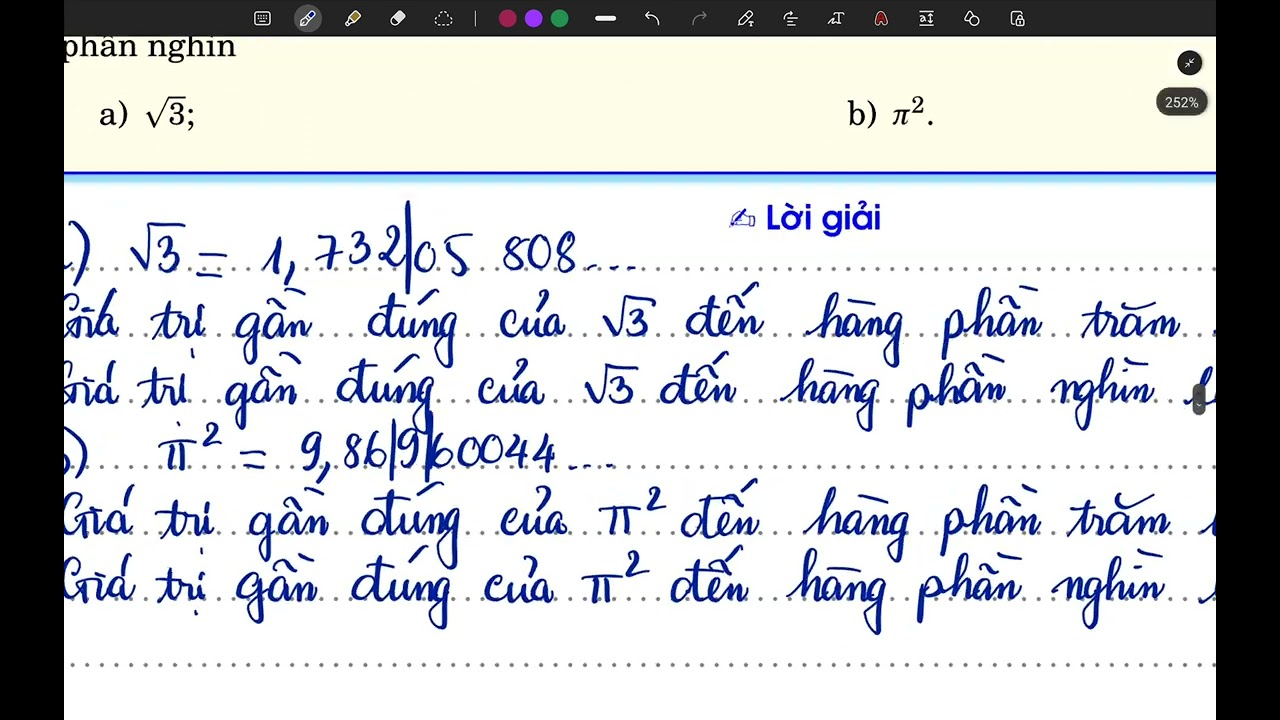 252%
phần nghìn
a) √3;
b) π².
Lời giải
√3 = 1,732|05 808...
Giá trị gần đúng của √3 đến hàng phần trăm
Giá trị gần đúng của √3 đến hàng phần nghìn
π² = 9,86|9|60044...
Giá trị gần đúng của π² đến hàng phần trăm
Giá trị gần đúng của π² đến hàng phần nghìn